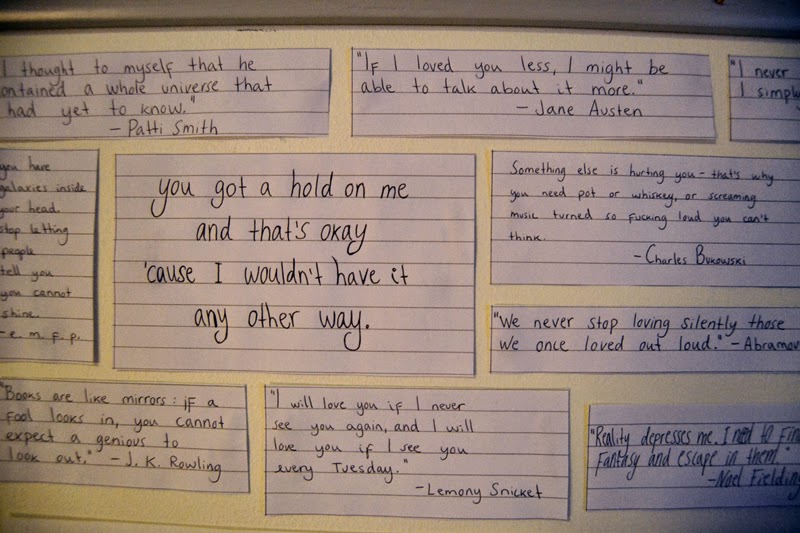 I thought to myself that he
ontained a whole universe that
had yet to know."
- Patti Smith
"If I loved you less, I might be
able to talk about it more."
- Jane Austen
"I never
I simply
you have
galaxies inside
your head.
stop letting
people
tell you
you cannot
shine.
- e. m. f. p.
you got a hold on me
and that's okay
'cause I wouldn't have it
any other way.
Something else is hurting you - that's why
you need pot or whiskey, or screaming
music turned so fucking loud you can't
think.
- Charles Bukowski
"We never stop loving silently those
we once loved out loud." - Abramov
"Books are like mirrors: if a
fool looks in, you cannot
expect a genious to
look out." - J. K. Rowling
"I will love you if I never
see you again, and I will
love you if I see you
every Tuesday."
- Lemony Snicket
"Reality depresses me. I need to fin
fantasy and escape in them"
- Noel Fielding